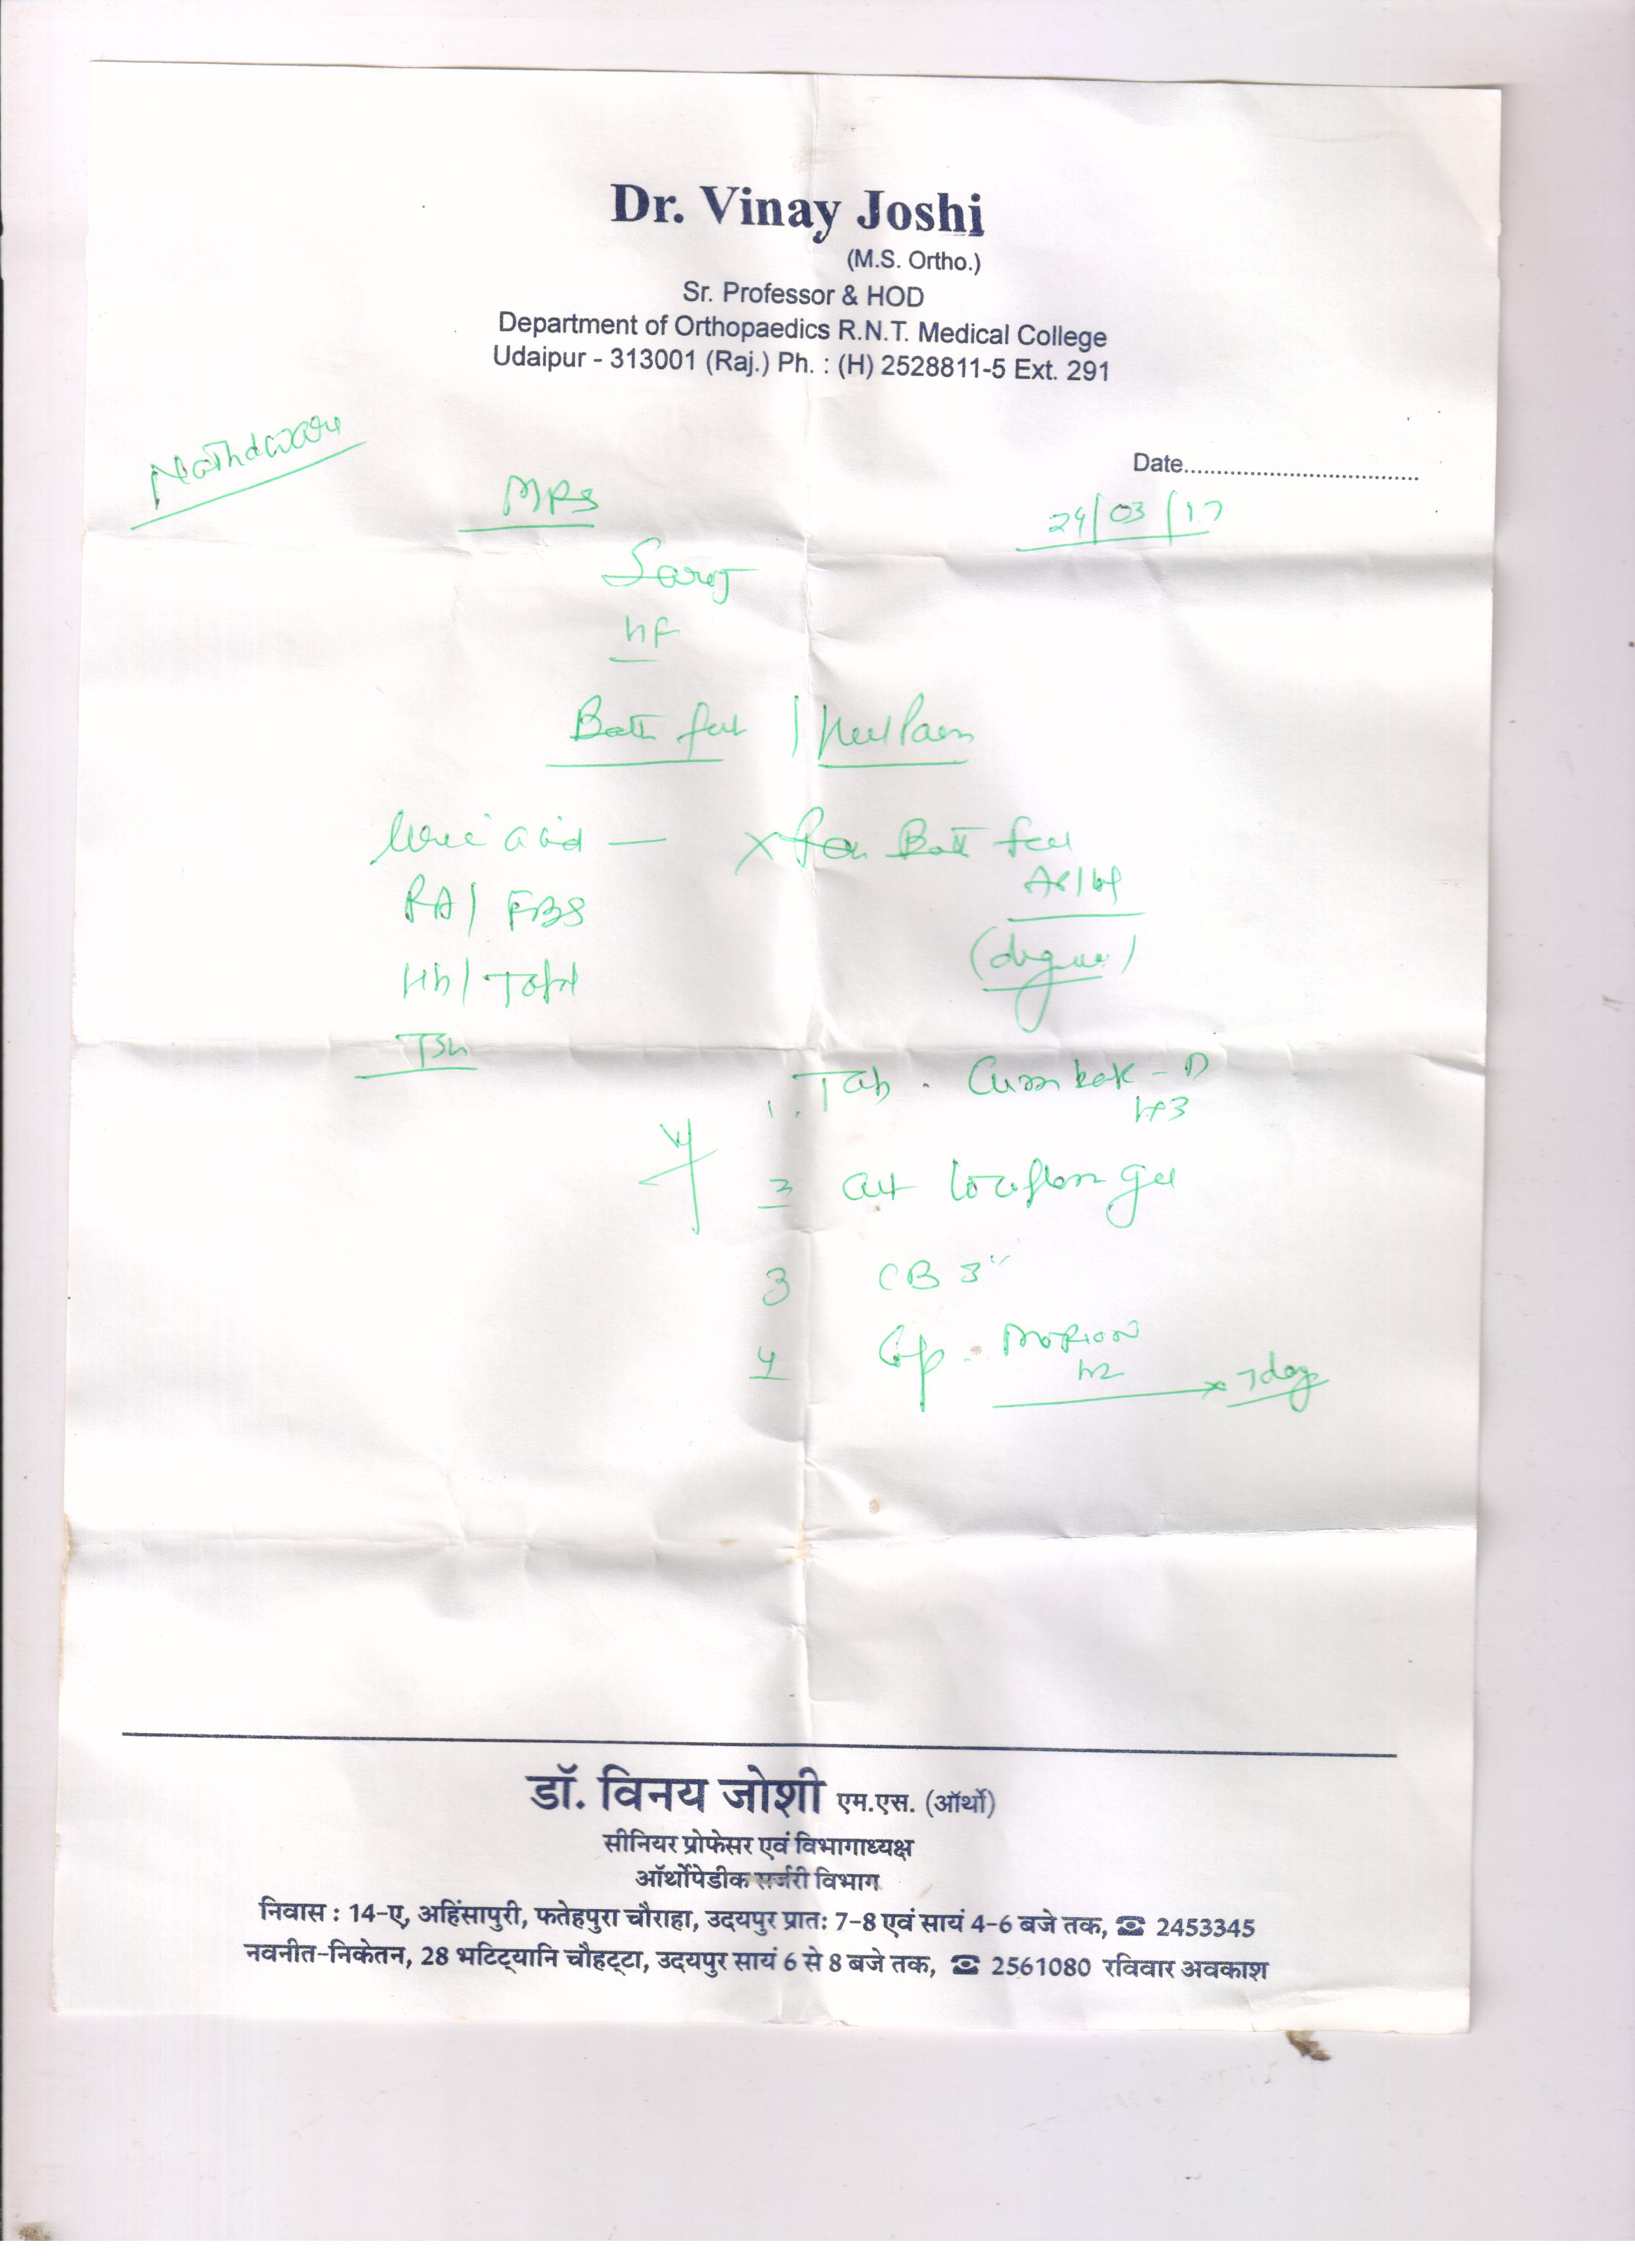 Dr. Vinay Joshi
(M.S. Ortho.)
Sr. Professor & HOD
Department of Orthopaedics R.N.T. Medical College
Udaipur - 313001 (Raj.) Ph. : (H) 2528811-5 Ext. 291
Date
24/03/17
Saroj
Both feet / Heel Pain
Uric acid — X Ray Both feet
RA / FBS
Hb /
(degree)
TSH
1. Tab. - D
2 gel
3 CB 3"
4 Cap. x 7 days
डॉ. विनय जोशी एम.एस. (ऑर्थो)
सीनियर प्रोफेसर एवं विभागाध्यक्ष
ऑर्थोपेडीक सर्जरी विभाग
निवास : 14-ए, अहिंसापुरी, फतेहपुरा चौराहा, उदयपुर प्रातः 7-8 एवं सायं 4-6 बजे तक, ☎ 2453345
नवनीत-निकेतन, 28 भटिट्यानि चौहट्टा, उदयपुर सायं 6 से 8 बजे तक, ☎ 2561080 रविवार अवकाश